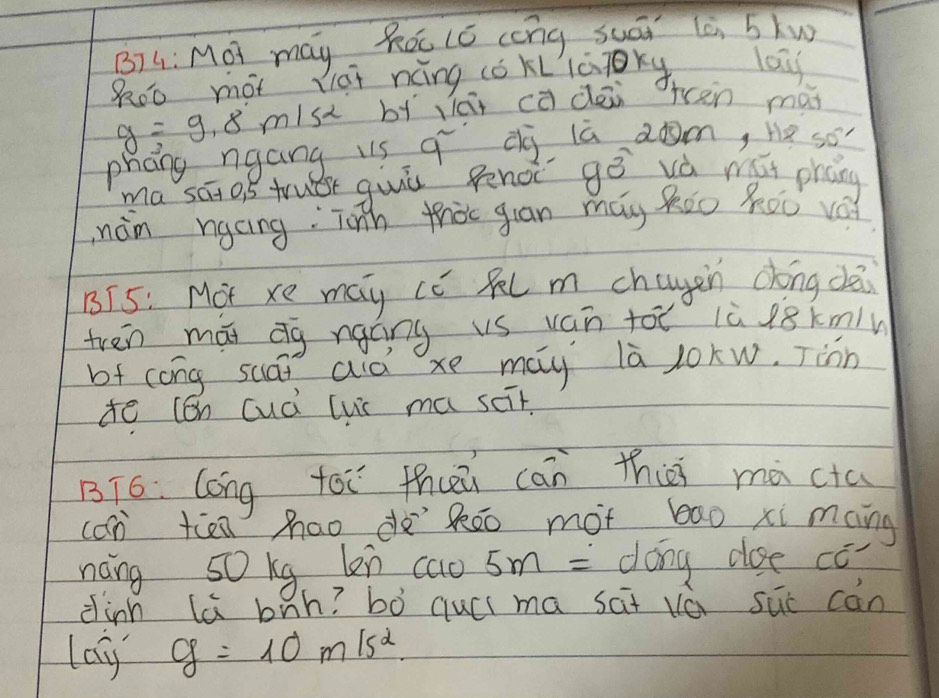 BT4: Một máy kéo có công suất là 5 kW
kéo một vật nặng có KL là 70kg lấy
g = 9,8 m/s² bt vật cđ đều trên mặt
phẳng ngang vs q~ đg là 200m, Hệ số
ma sát 0,5 trượt giữa khối gỗ và mặt phẳng
nằm ngang. Tính thời gian máy kéo kéo vật
BT5: Một xe máy có kL m chuyển động đều
trên mặt đg ngang vs vận tốc là 18 km/h
bt công suất của xe máy là 10 kW. Tính
độ lớn của lực ma sát.
BT6: Công tối thiểu cần thiết mà cta
cần tiêu hao để kéo một bao xi măng
nặng 50 kg lên cao 5m = dòng dọc cố
định là bnh? bỏ qua ma sát và sức cản
lấy g = 10 m/s².